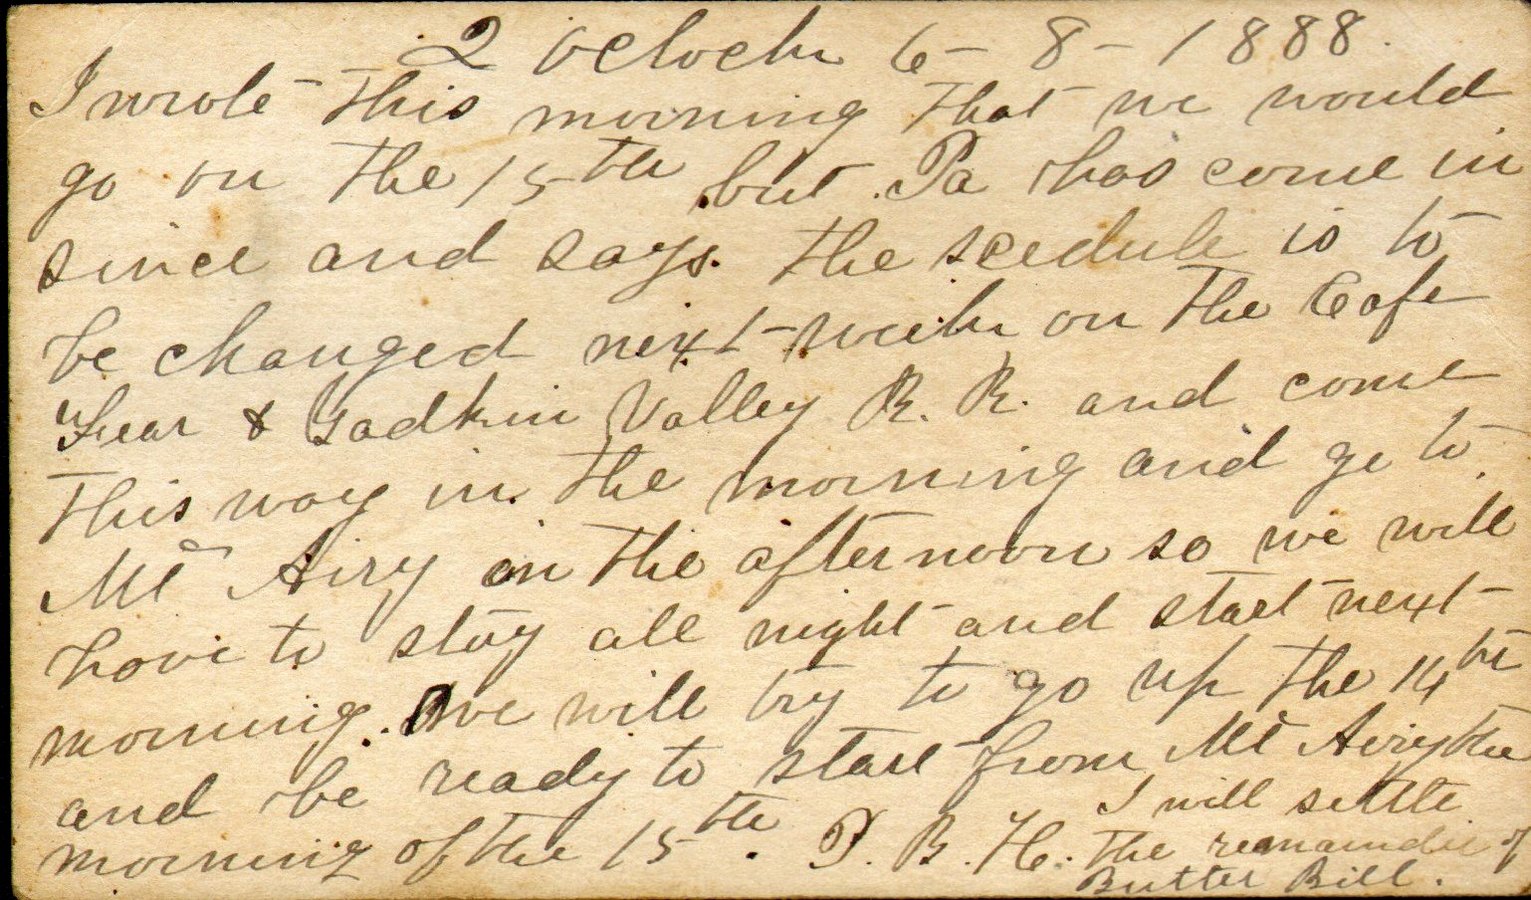 2 oclock 6 - 8 - 1888.
I wrote this morning that we would
go on the 15th but Pa has come in
since and says the scedule is to
be changed next week on the Cafe
Fear & Yadkin Valley R. R. and come
this way in the morning and go to
Mt Airy in the afternoon so we will
have to stay all night and start next
morning. we will try to go up the 14th
and be ready to start from Mt Airy the
morning of the 15th. P. B. H.
I will settle
the remainder of
Butter Bill.